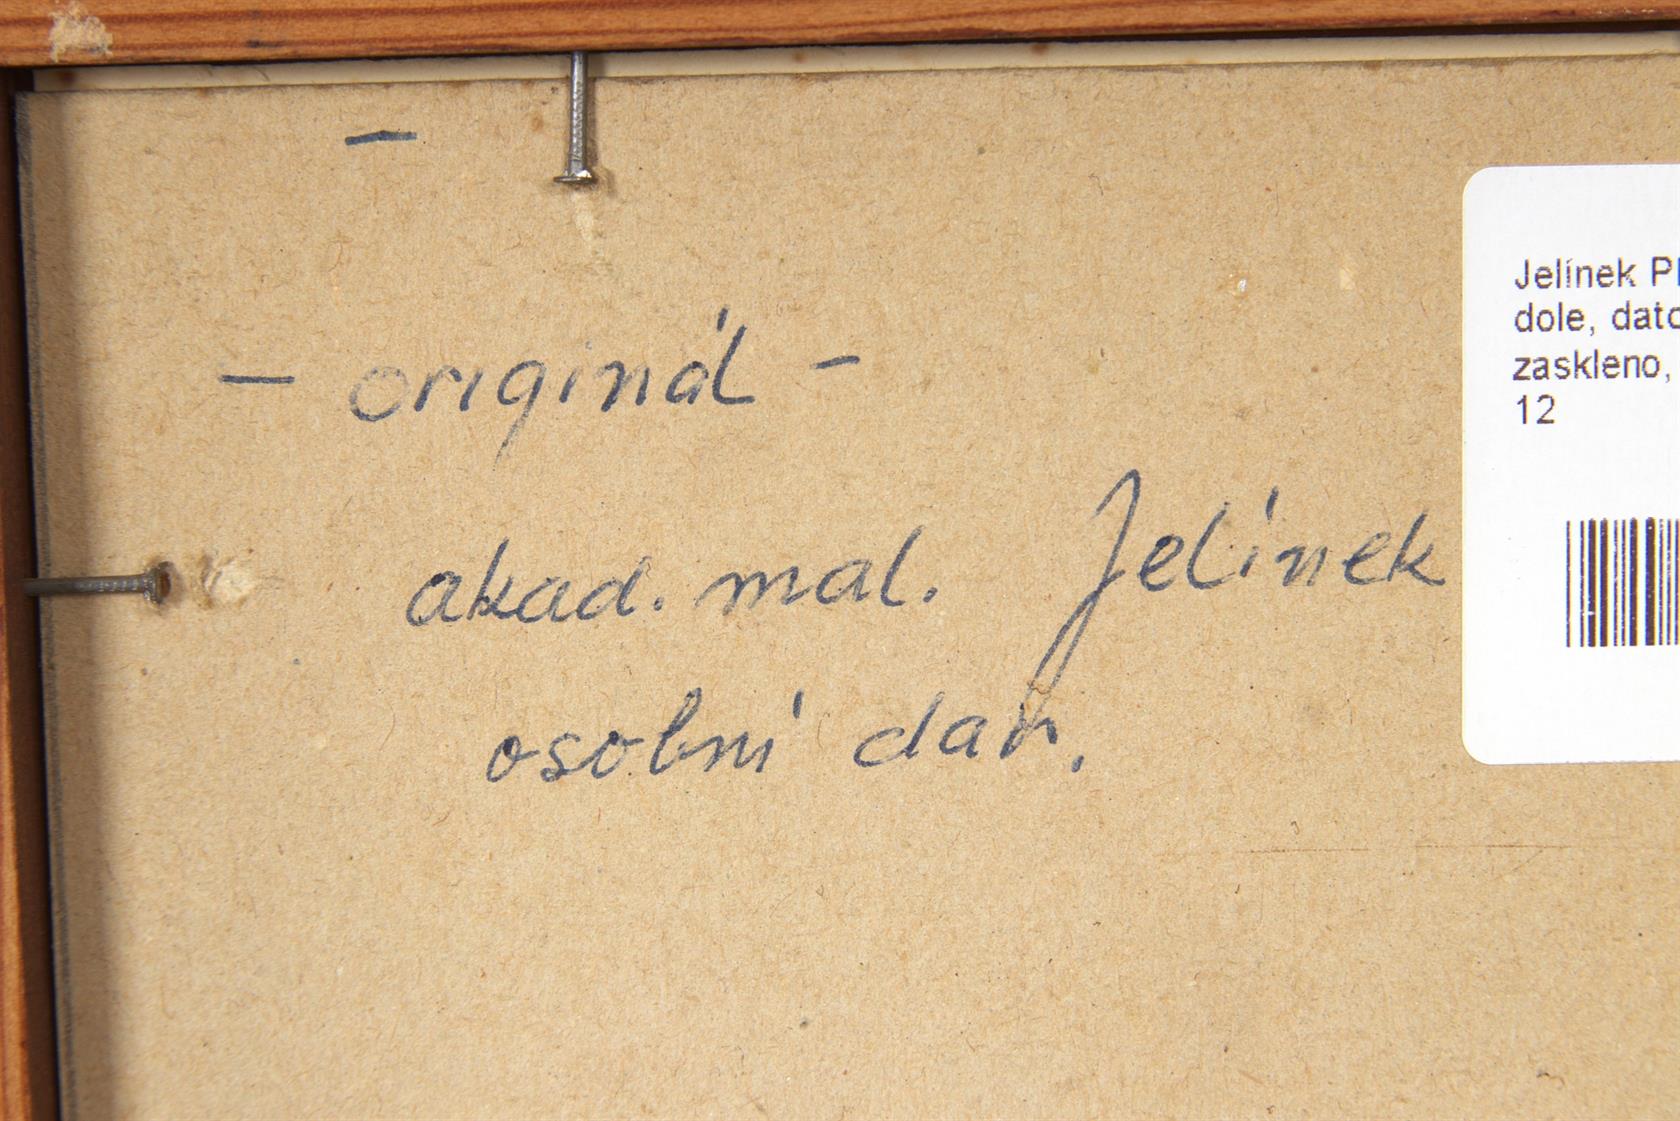 –
– originál –
akad. mal. Jelínek
osobní dar.
Jelínek
dole,
zaskleno,
12